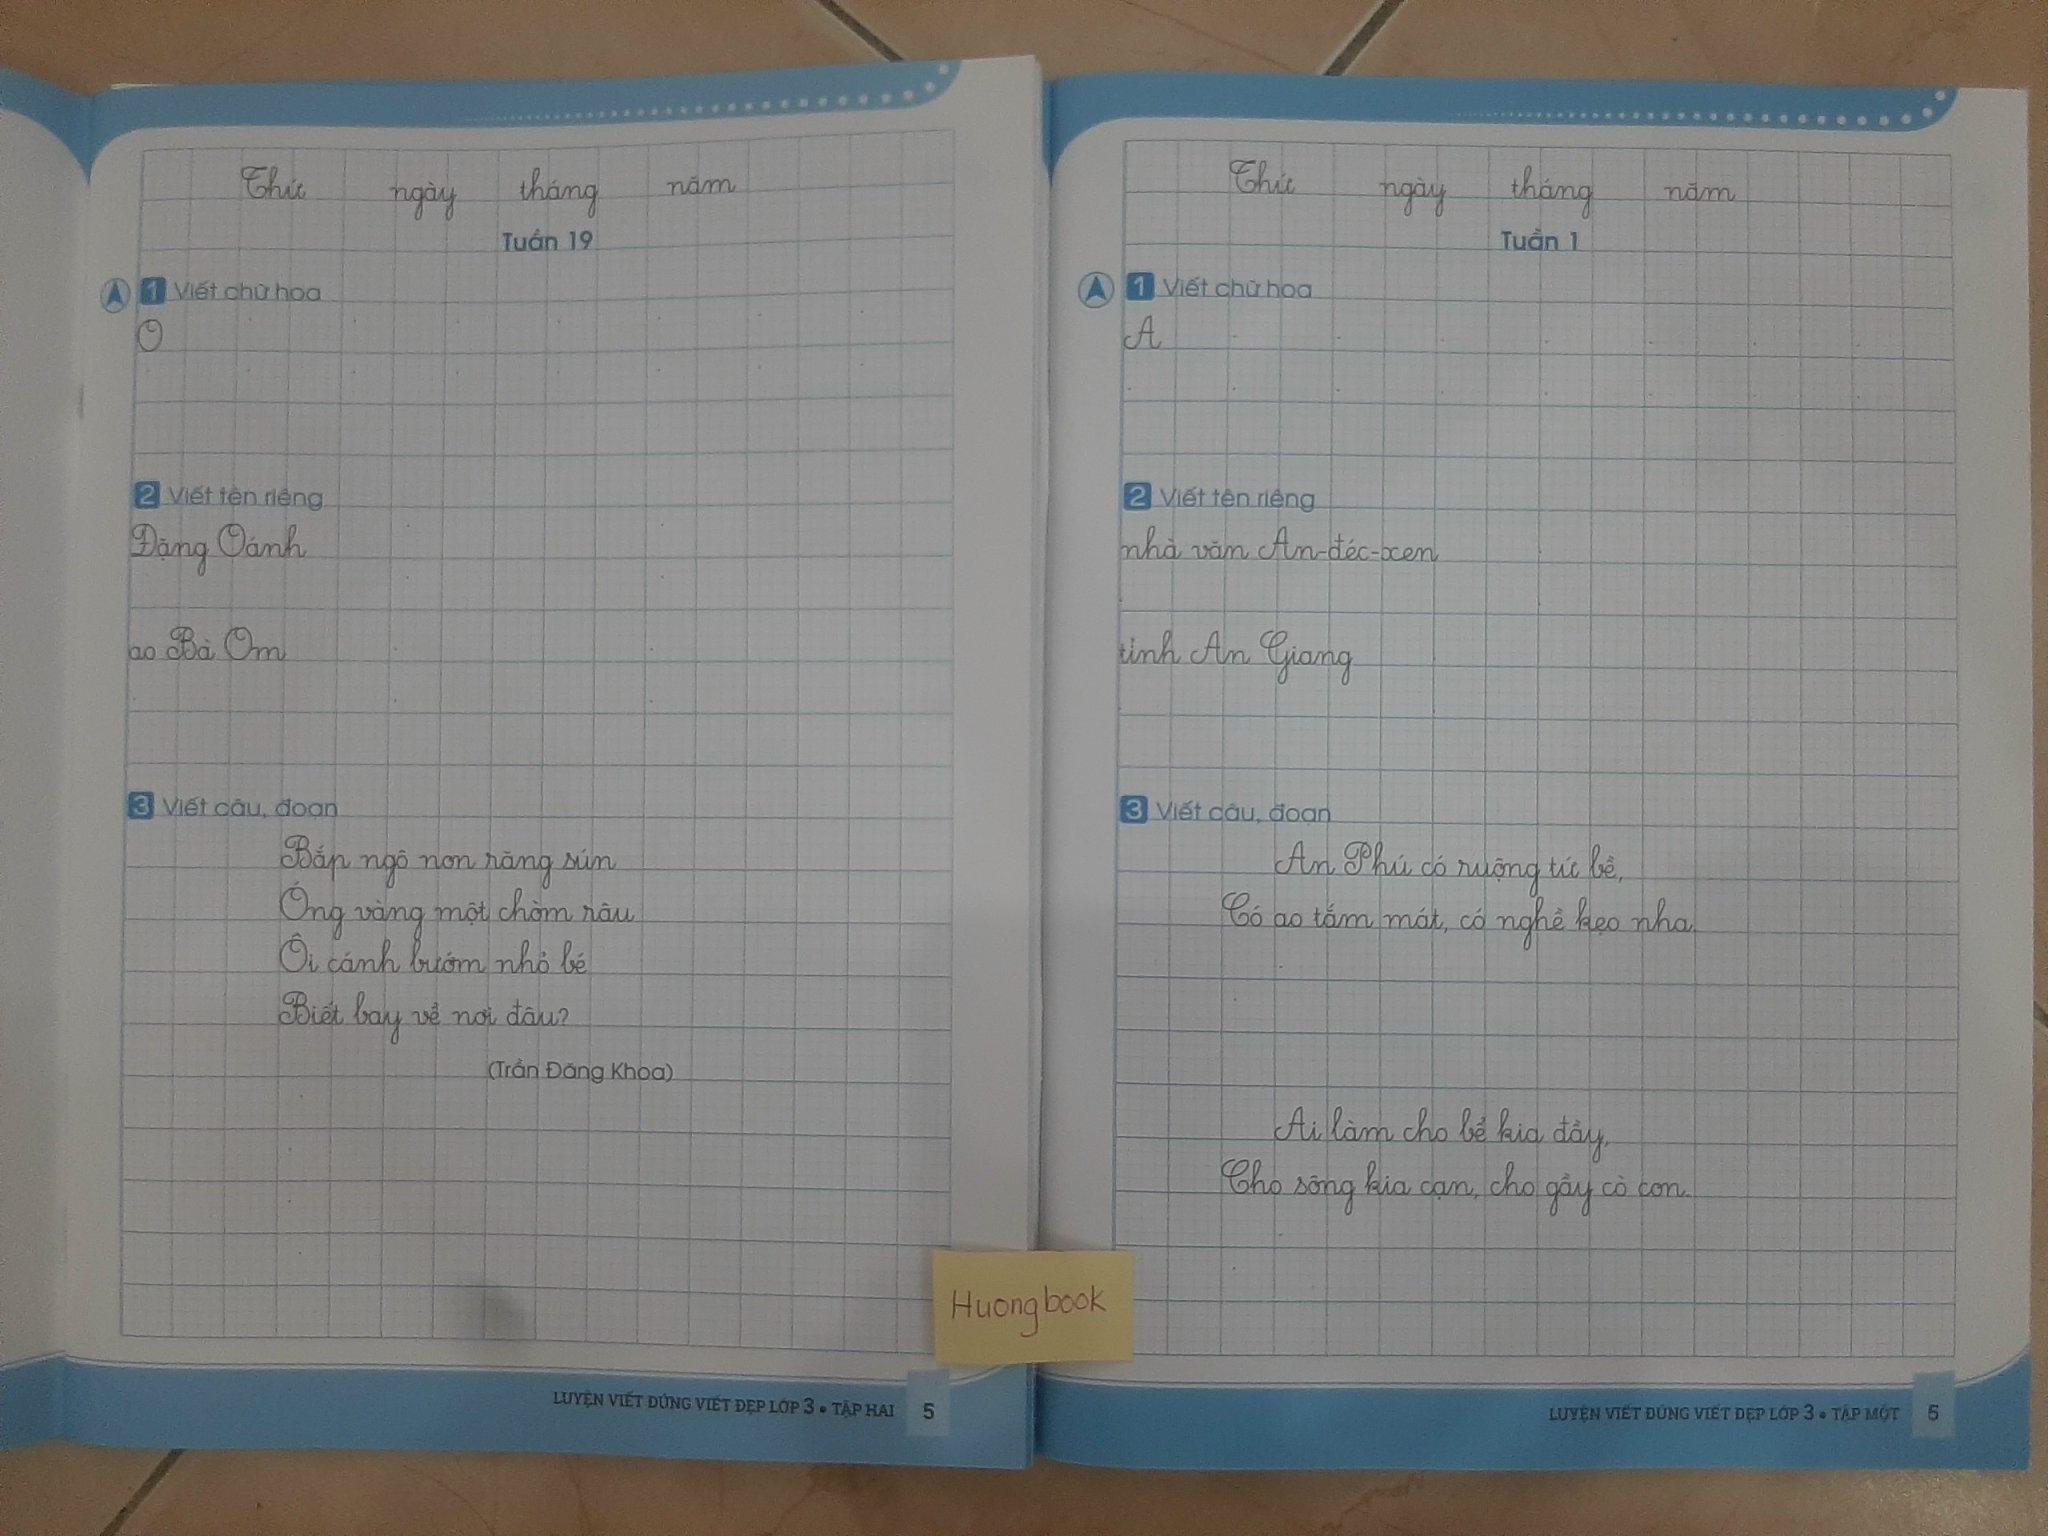 Thứ ngày tháng năm
Tuần 19
1 Viết chữ hoa
O
2 Viết tên riêng
Đặng Oánh
ao Bà Om
3 Viết câu, đoạn
Bắp ngô non răng sún
Óng vàng một chòm râu
Ôi cánh bướm nhỏ bé
Biết bay về nơi đâu?
(Trần Đăng Khoa)
LUYỆN VIẾT ĐÚNG VIẾT ĐẸP LỚP 3 • TẬP HAI 5
Thứ ngày tháng năm
Tuần 1
1 Viết chữ hoa
A
2 Viết tên riêng
nhà văn An-đéc-xen
tỉnh An Giang
3 Viết câu, đoạn
An Phú có ruộng tứ bề,
Có ao tắm mát, có nghề kẹo nha.
Ai làm cho bể kia đầy,
Cho sông kia cạn, cho gầy cò con.
LUYỆN VIẾT ĐÚNG VIẾT ĐẸP LỚP 3 • TẬP MỘT 5
Huongbook